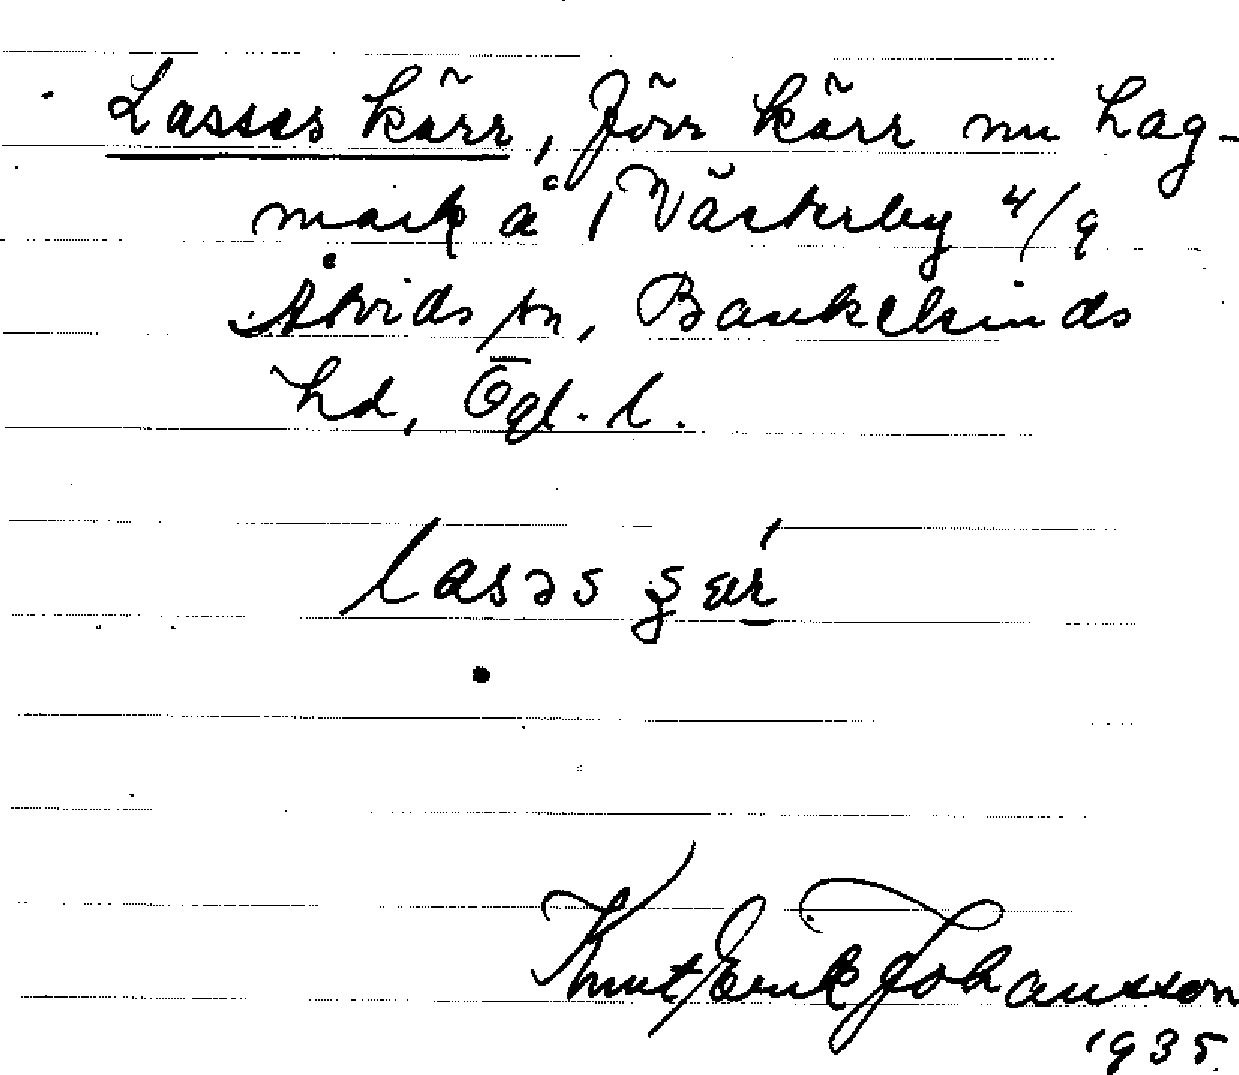 Lasses kärr, förr kärr nu hag-
mark å Västerby 4/9
Åtvids sn, Bankekinds
hd, Ögl. l.
lasəs
Knut Erik Johansson
1935.